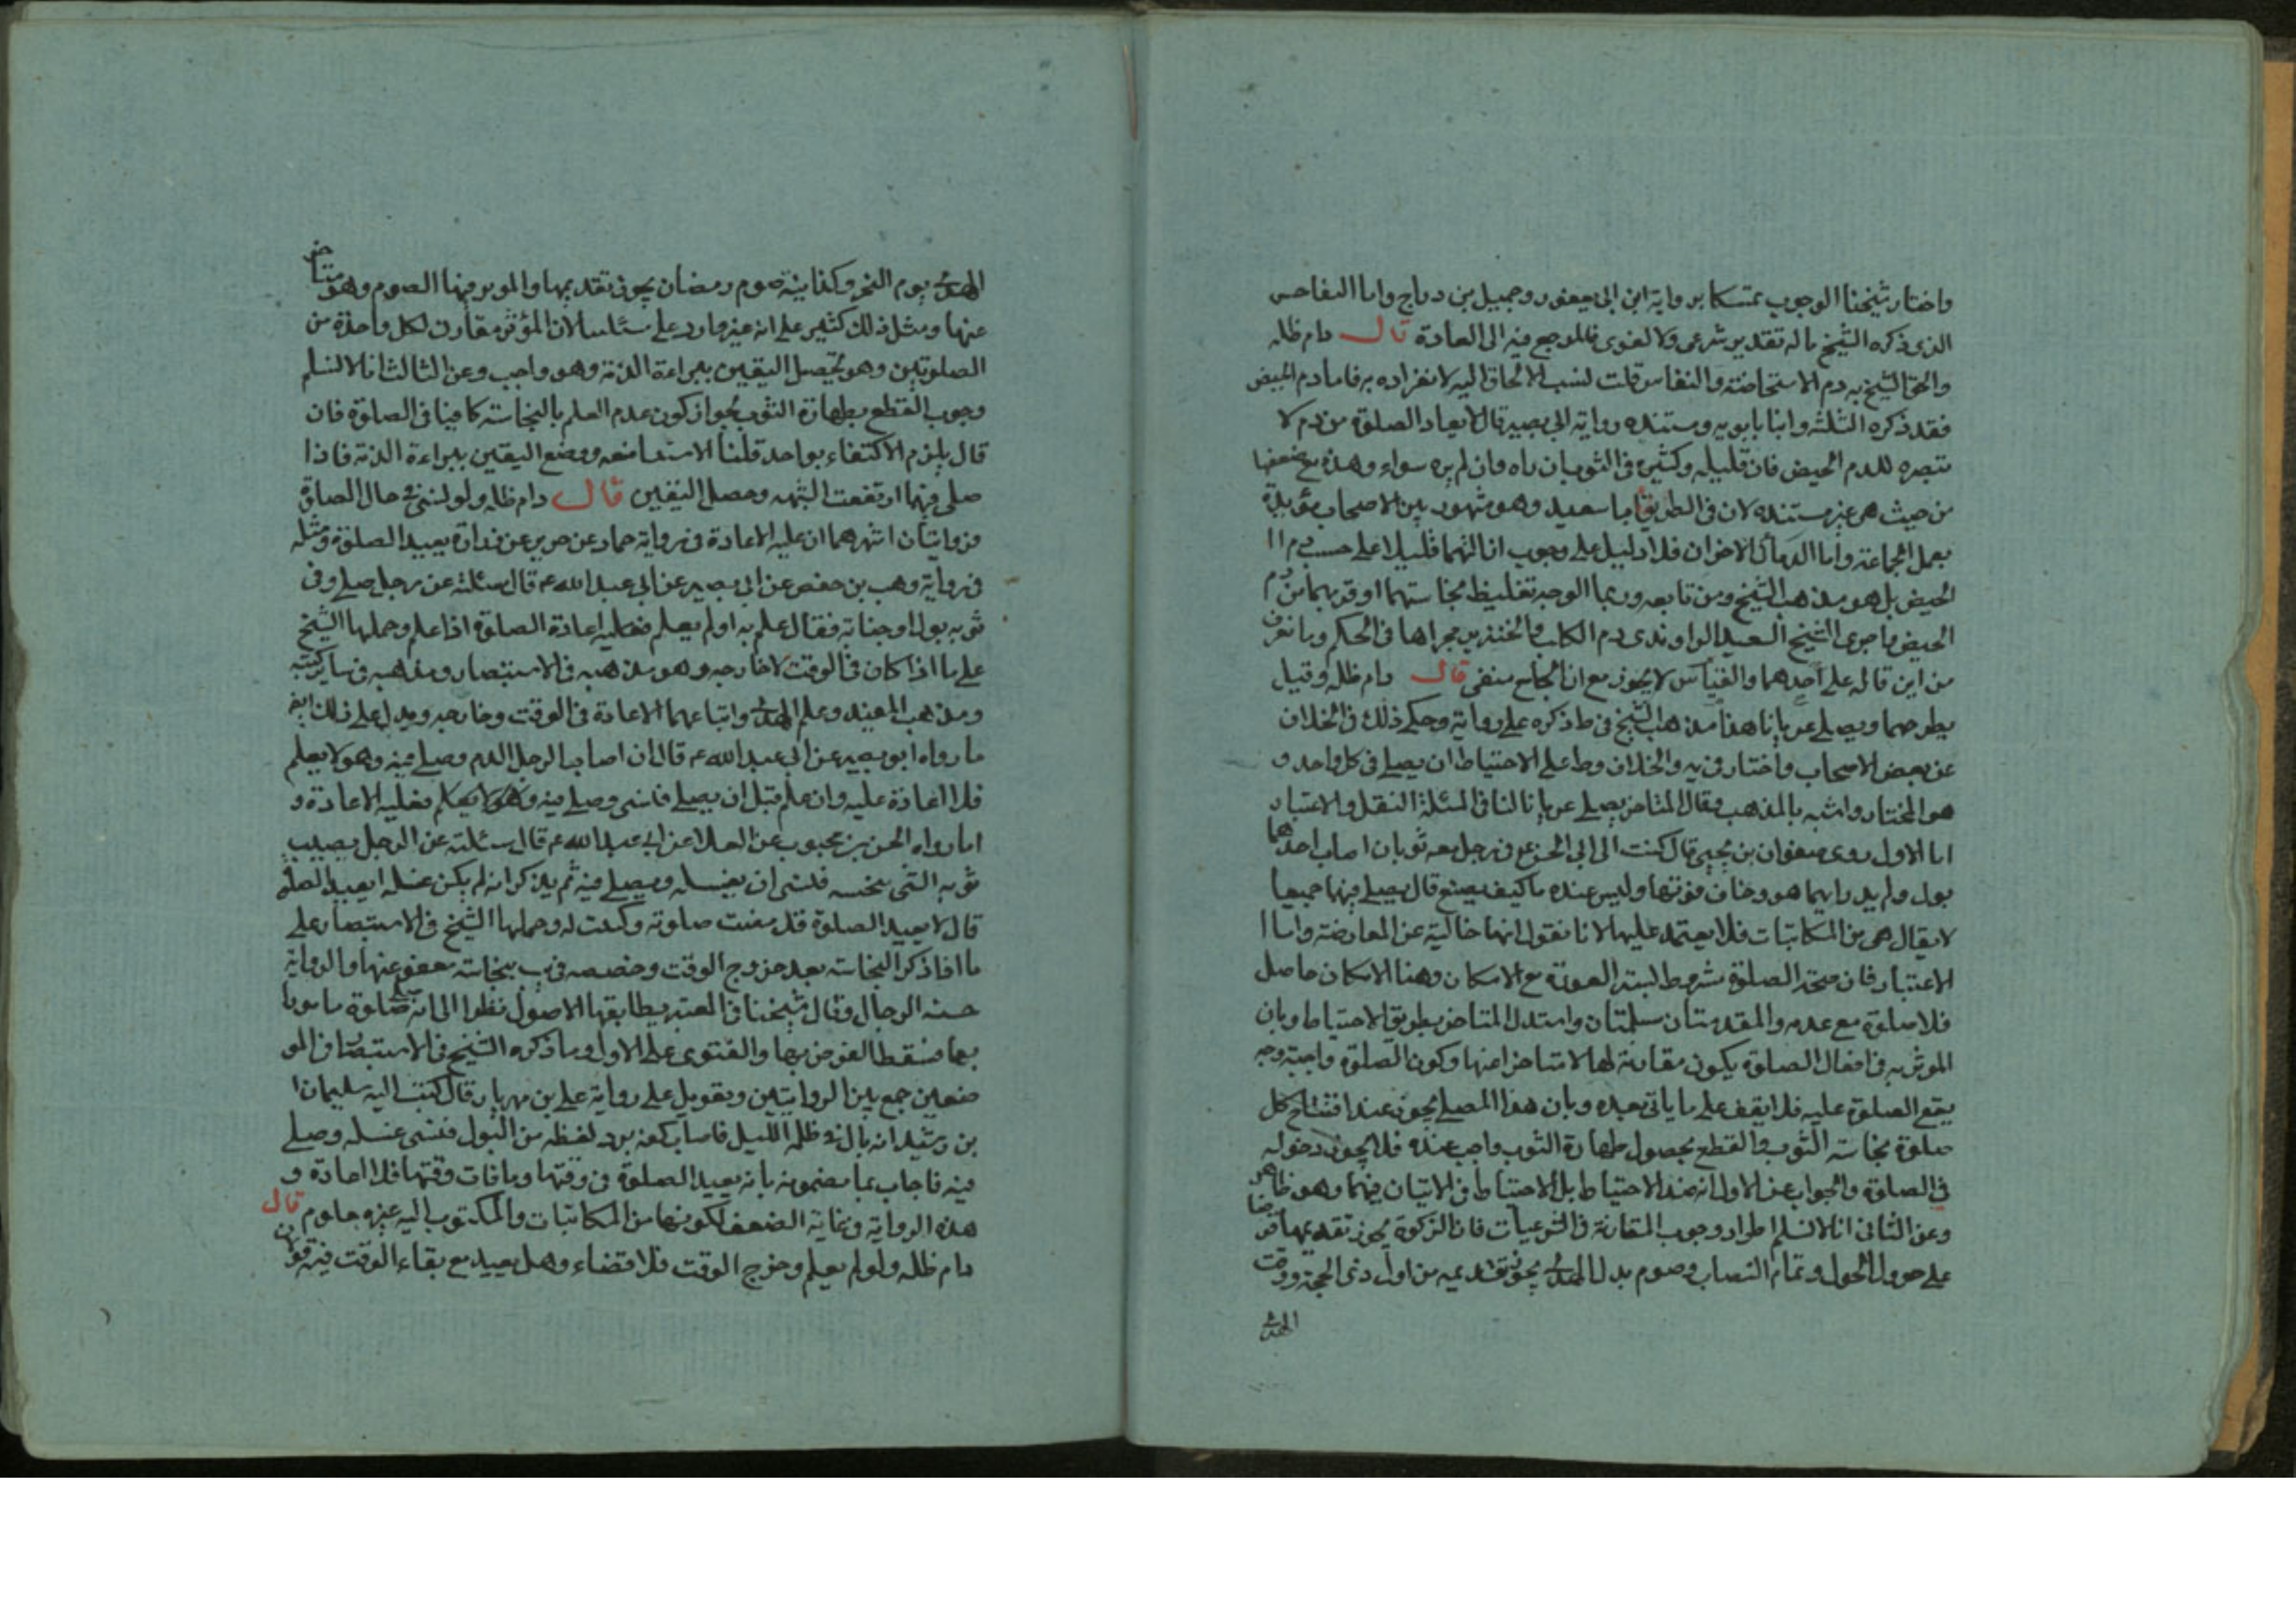 واختار شيخنا الوجوب تمسكا برواية ابن ابى يعفور وجميل بن دراج واما التفاحش
الذى ذكره الشيخ ماله تقدير شرعى ولا لغوى فالمرجع فيه الى العادة قال دام ظله
والحق الشيخ به دم الاستحاضة والنفاس قلت نسب الالحاق اليه لانفراده به فاما دم الحيض
فقد ذكره الثلثة وابنا بابويه ومستنده رواية ابى بصير قال لا يعاد الصلوة من دم لا
تبصره الا دم الحيض فان قليله وكثيره فى الثوب ان راه وان لم يره سواء وهذه مع ضعفها
من حيث هى غير مستندة لان فى الطريق ابا سعيد وهو مشهور بين الاصحاب مؤيدة
بعمل الجماعة واما الدمان الاخران فلا دليل على وجوب ازالتهما قليلا على حسب دم ا
الحيض بل هو مذهب الشيخ ومن تابعه وربما الوجه تغليظ نجاستهما او قربهما من دم
الحيض واجرى الشيخ السعيد الراوندى دم الكلب والخنزير مجراها فى الحكم وما نعرف
من اين قاله على احدهما والقياس لا يجوز مع ان الجامع منفى قال دام ظله وقيل
يطرحهما ويصلى عريانا هذا مذهب الشيخ فى ط ذكره على رواية وحكى ذلك فى الخلاف
عن بعض الاصحاب واختار فى يه والخلاف وط على الاحتياط ان يصلى فى كل واحد و
هو المختار واشبه بالمذهب وقال المتاخر يصلى عريانا لنا فى المسئلة النقل والاعتبار
اما الاول روى صفوان بن يحيى قال كتبت الى ابى الحسن ع فى رجل معه ثوبان اصاب احدهما
بول ولم يدر ايهما هو وخاف فوتها وليس عنده ما كيف يصنع قال يصلى فيهما جميعا
لا يقال هى من المكاتبات فلا يعتمد عليها لانا نقول انها خالية عن المعارضة واما ا
الاعتبار فان صحة الصلوة مشروط لستر العورة مع الامكان وهنا الامكان حاصل
فلا صلوة مع عدمه والمقدمتان مسلمتان واستدل المتاخر بطريق الاحتياط وبان
الموثر به فى افعال الصلوة يكون مقارنة لها لا متاخرا عنها وكون الصلوة واجبة وجه
يقع الصلوة عليه فلا يقف على ما ياتى بعده وبان هذا المصلى يجوز عند افتتاح كل
صلوة نجاسة الثوب والقطع بحصول طهارة الثوب واجب عنده فلا يجوز دخوله
فى الصلوة والجواب عن الاول انه ضد الاحتياط بل الاحتياط فى الاتيان فيهما وهو ظاهر
وعن الثانى انا لا نسلم اطراد وجوب المقارنة فى الشرعيات فان الزكوة يجوز تقديمها قرضا
على حوول الحول وتمام النصاب وصوم بدل الهدى يجوز تقديمه من اول ذى الحجة ووقت
الهدى
الهدى يوم النحر وكذا نية صوم رمضان يجوز تقديمها والموثر فيها الصوم وهو متاخر
عنها ومثل ذلك كثير على انه غير وارد على مسئلتنا لان المؤثر مقارن لكل واحدة من
الصلوتين وهو تحصل اليقين ببراءة الذمة وهو واجب وعن الثالث انا لا نسلم
وجوب القطع بطهارة الثوب لجواز كون عدم العلم بالنجاسة كافيا فى الصلوة فان
قال يلزم الاكتفاء بواحد قلنا الاستد ووضع اليقين ببراءة الذمة فاذا
صلى فيهما ارتفعت الشبهه وحصل اليقين قال دام ظله ولو نسى فى حال الصلوة
فروايتان اشهرهما ان عليه الاعادة فى رواية حماد عن حريز عن زرارة يعيد الصلوة ومثله
فى رواية وهب بن حفص عن ابى بصير عن ابى عبد الله ع قال سئلته عن رجل صلى وفى
ثوبه بول او جنابة فقال علم به او لم يعلم فعليه اعادة الصلوة اذا علم وحملها الشيخ
على ما اذا كان فى الوقت لا خارجه وهو مذهبه فى الاستبصار ومذهبه فى ساير كتبه
ومذهب المفيد وعلم الهدى واتباعهما الاعادة فى الوقت وخارجه ويدل على ذلك ايض
ما رواه ابو بصير عن ابى عبد الله ع قال ان اصاب الرجل الدم وصلى فيه وهو لا يعلم
فلا اعادة عليه وان علم قبل ان يصلى فنسى وصلى فيه وهو لا يعلم فعليه الاعادة و
اما رواه الحسن بن محبوب عن العلا عن ابى عبد الله ع قال سئلته عن الرجل يصيب
ثوبه الشى ينجسه فنسى ان يغسله ويصلى فيه ثم يذكر انه لم يكن غسله ايعيد الصلوة
قال لا يعيد الصلوة قد مضت صلوته وكتبت له وحملها الشيخ فى الاستبصار على
ما اذا ذكر النجاسة بعد خروج الوقت وخصصه فى يب بنجاسة معفو عنها والرواية
حسنة الرجال وقال شيخنا فى المعتبر يطابقها الاصول نظرا الى انه صلى صلوة مامورا
بها فسقط الفرض بها والفتوى على الاول وما ذكره الشيخ فى الاستبصار فى المو
ضعين جمع بين الروايتين وتعويل على رواية على بن مهزيار قال كتب اليه سليمان ا
بن رشيد انه بال فى ظلمة الليل فاصاب كفه برد نقطة من البول فنسى غسله وصلى
فيه فاجاب بما مضمونه بانه يعيد الصلوة فى وقتها وما فات وقتها فلا اعادة و
هذه الرواية فى غاية الضعف لكونها من المكاتبات والمكتوب اليه غير معلوم قال
دام ظله ولو لم يعلم وخرج الوقت فلا قضاء وهل يعيد مع بقاء الوقت فيه قولان